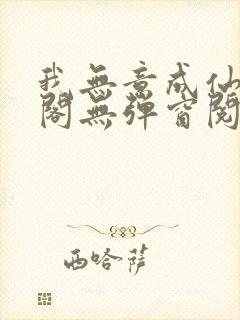 我無意成仙
閣無彈窗閱
西哈薩